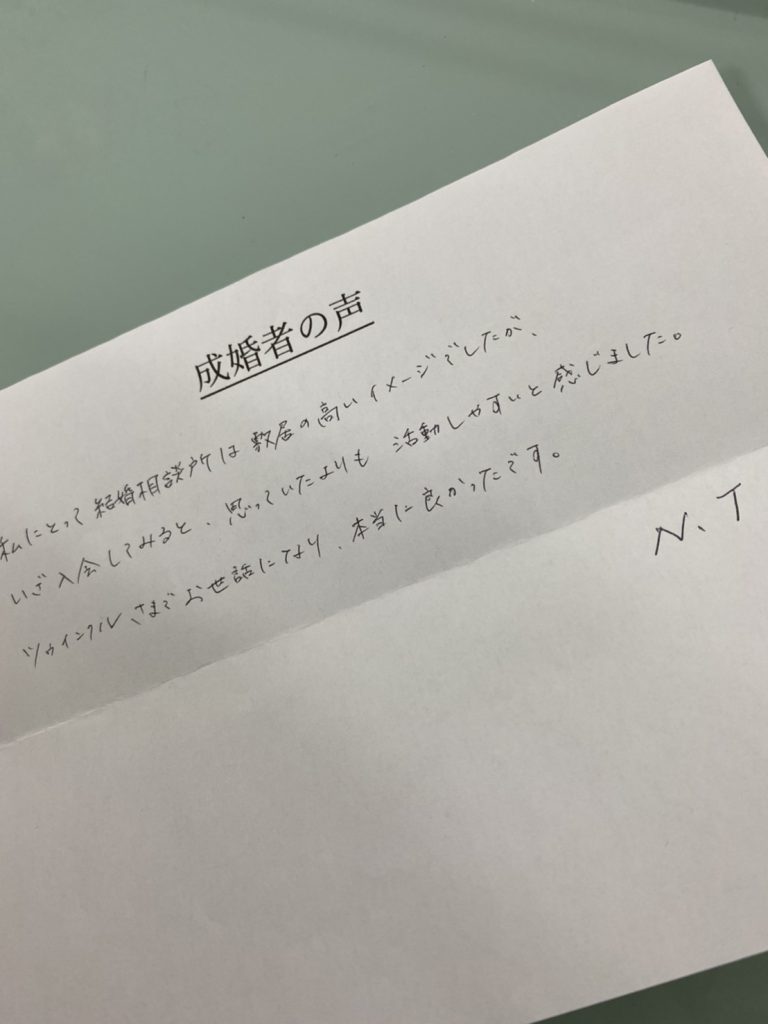 成婚者の声
私にとって結婚相談所は敷居の高いイメージでしたが、
いざ入会してみると、思っていたよりも活動しやすいと感じました。
ツゥインクルさまでお世話になり、本当に良かったです。
N、T